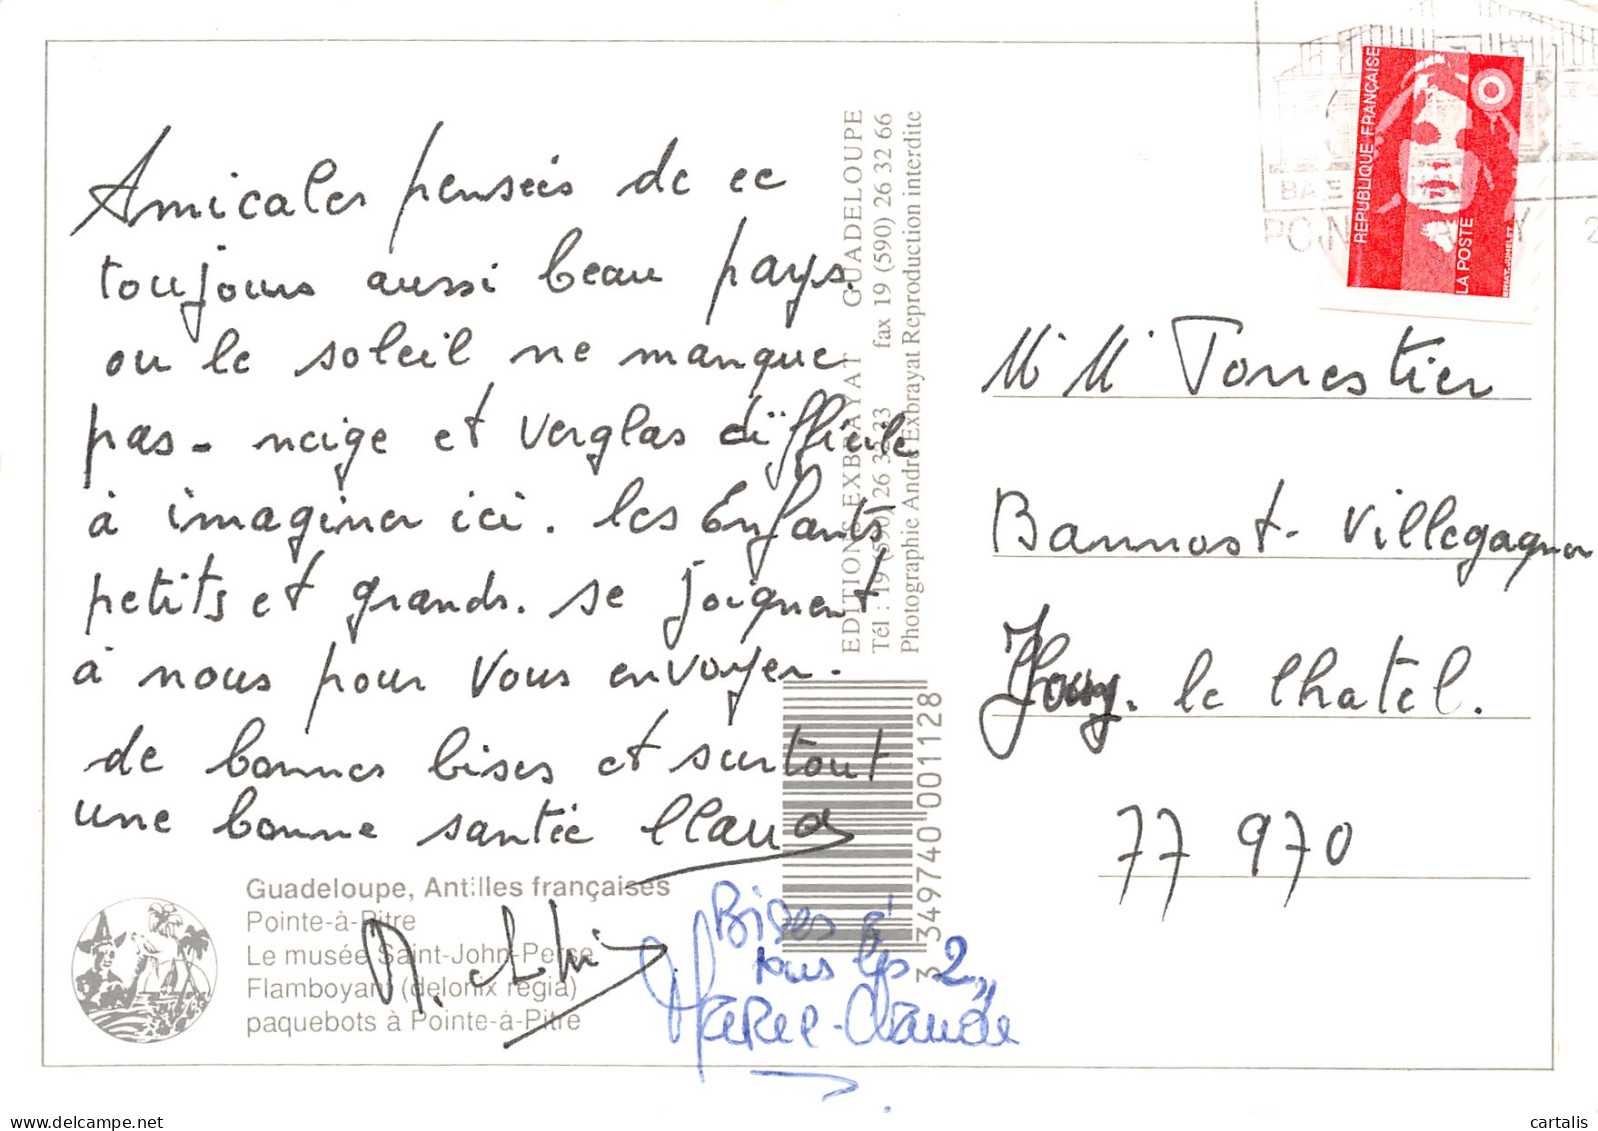 Amicales pensées de ce
toujours aussi beau pays.
ou le soleil ne manque
pas - neige et verglas difficile
à imaginer ici. les Enfants
petits et grands. se joignent
à nous pour vous envoyer.
de bonnes bises et surtout
une bonne santée Claud
Bises à
tous les 2
Marie-Claude
Guadeloupe, Antilles françaises
Pointe-à-Pitre
Le musée Saint-John-Perse
Flamboyant (delonix regia)
paquebots à Pointe-à-Pitre
EDITIONS EXBRAYAT GUADELOUPE
Tél : 19 (590) 26 32 33 fax 19 (590) 26 32 66
Photographie André Exbrayat Reproduction interdite
3 349740 001128
REPUBLIQUE FRANÇAISE
LA POSTE
M. M. Torrestier
Bannost-Villegagnon
Jouy. le Chatel.
77 970
cartalis